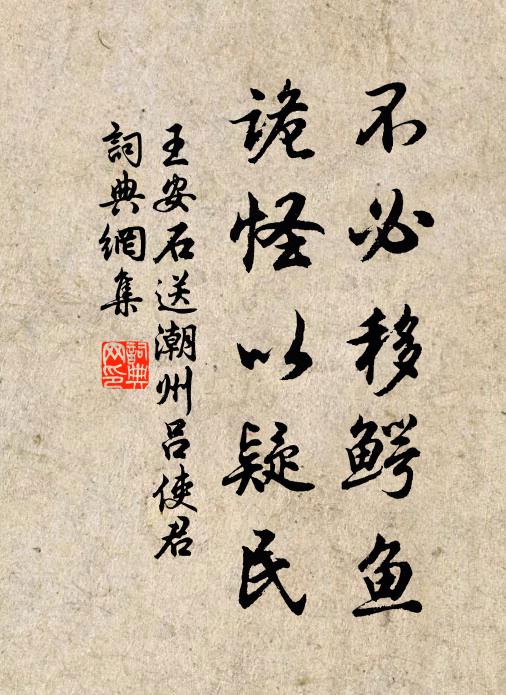 不必移鳄鱼
詭怪以疑民
王安石送潮州吕使君
詞典網集
詞典网印